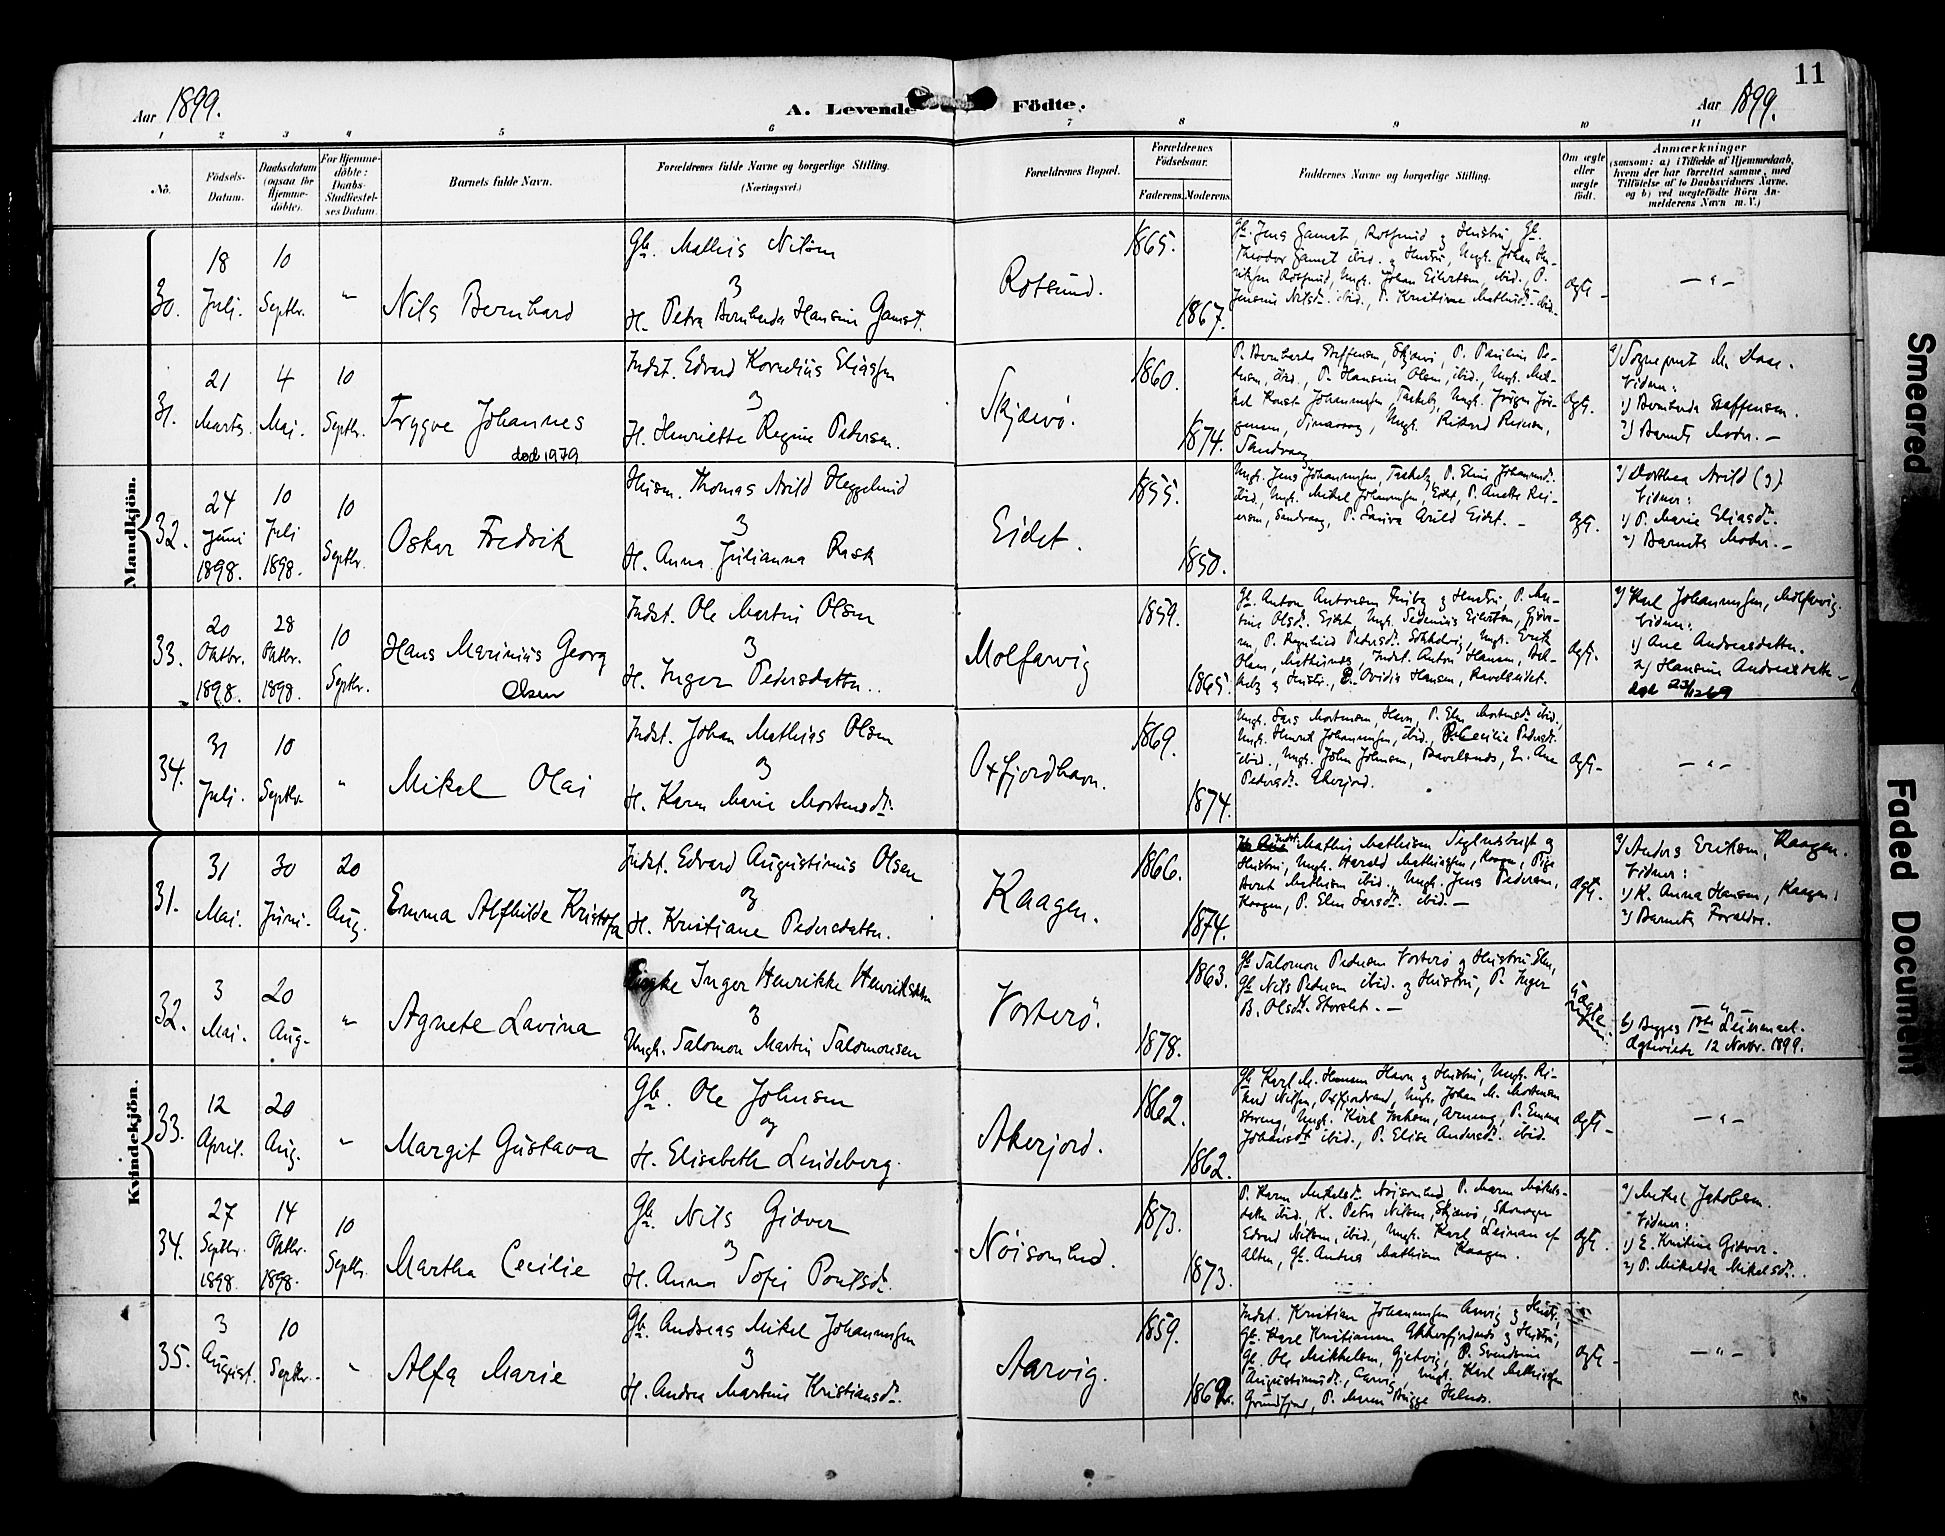 11
Aar 1899.
A. Levende Födte.
Aar 1899.
1 2 3 4 5 6 7 8 9 10 11
No.
Födsels-
Datum.
Daabsdatum
(ogsaa for
Hjemme-
döbte).
For Hjemme-
döbte:
Daabs-
Stadfæstel-
ses Datum.
Barnets fulde Navn.
Forældrenes fulde Navne og borgerlige Stilling.
(Næringsvei.)
Forældrenes Bopæl.
Forældrenes
Födselsaar.
Faderens. Moderens.
Faddernes Navne og borgerlige Stilling.
Om ægte
eller
uægte
født.
Anmærkninger
(saasom: a) i Tilfælde af Hjemmedaab,
hvem der har forrettet samme, med
Tilföielse af to Daabsvidners Navne,
og b) ved uægtefödte Börn An-
melderens Navn m. V.)
Mandkjön.
30.
18
Juli.
10
Septbr.
"
Nils Bernhard
Gb. Mathis Nilsen
og
H. Petra Bernharda Hansine Gamst.
Rotsund.
1865.
1867.
Gb. Jens Gamst, Rotsund og Hustru, Gb.
Theodor Gamst ibid. og Hustru, Ungk. Johan Hen-
riksen Rotsund, Ungk. Johan Eilertsen, ibid., P.
Jensine Nilsdr. ibid., P. Kristine Mathisdr. ibid.
Ægte
— " —
31.
21
Marts.
4
Mai.
10
Septbr.
Trygve Johannes
død 1979
Indst. Edvard Kornelius Eliassen
og
H. Henriette Regine Pedersen.
Skjærvö.
1860.
1874.
P. Bernharda Steffensen, Skjærvö, P. Pauline Pe-
dersen, ibid., P. Hansine Olsen, ibid., Ungk. Mik-
kel Johannessen, Taskeby, Ungk. Jörgen Jör-
gensen, Ungk. Rikard Reiersen,
Sandvaag
Ægte.
a) Sogneprest M. Daae.
Vidner:
1) Bernharda Steffensen.
2) Barnets Moder. —
32.
24
Juni
1898.
10
Juli
1898.
10
Septbr.
Oskar Fredrik
Husm. Thomas Arild Heggelund
og
H. Anna Julianna Rask
Eidet.
1855.
1850.
Ungk. Jens Johannessen, Taskeby, P. Eline Johannesdr.
ibid., Ungk. Mikel Johannessen, Eidet, P. Anette Rei-
ersen, Sandvaag, P. Arild Eidet. —
Ægte.
a) Dorthea Arild (?)
Vidner:
1) P. Marie Eliasdr.
2) Barnets Moder. —
33.
20
Oktbr.
1898.
28
Oktbr.
1898.
10
Septbr.
Hans Marinius Georg
Olsen
Indst. Ole Martin Olsen
og
H. Inger Pedersdatter.
Molfarvig
1859.
1865.
Gb. Anton Antonsen og Hustru, P. Ma-
rine Olsdr. Eidet, Ungk. Sedenius Eilertsen,
P. Ragnhild Pedersdr. Ungk. Erik
Olsen, Indst. Anton Hansen,
og Hustru, Ovidia Hansen, Ravelseidet.
Ægte.
a) Karl Johannessen, Molfarvig.
Vidner:
1) Ane Andreasdatter.
2) Hansine Andreasdatter —
død 23/12 69
34.
31
Juli.
10
Septbr.
"
Mikel Olai
Indst. Johan Mathias Olsen
og
H. Karen Marie Mortensdr.
Oxfjordhavn.
1869.
1874.
Ungk. Lars Mortensen, Havn, P. Elen Mortensdr. ibid.,
Ungk. Henrik Johannessen, ibid., P. Cecilie Pedersdr.
ibid., Ungk. John Johnsen, E. Ane
Pedersdr. Akerjord.
Ægte —
— " —
Kvindekjön.
31.
31
Mai.
30
Juni.
20
Aug.
Emma Alfhilde Kristofa
Indst. Edvard Augustinus Olsen
og
H. Kristiane Pedersdatter.
Kaagen.
1866.
1874.
Indst. Mathis Mathisen og
Hustru, Ungk. Harald Mathiassen, Kaagen, Pige
Berit Mathisen ibid., Ungk. Jens Pedersen,
Kaagen, P. Elen Larsdr. ibid. —
Ægte.
a) Anders Eriksen, Kaagen.
Vidner:
1) K. Anna Hansen, Kaagen.
2) Barnets Forældre.
32.
3
Mai.
20
Aug.
"
Agnete Lavina
Inger Henrikke Henriksen
og
Ungk. Salomon Martin Salomonsen
Vorterö.
1863.
1878.
Gb. Salomon Pedersen Vorterö og Hustru Elen,
Gb. Nils Pedersen ibid. og Hustru, P. Inger
B. Olsdr. Storslet. —
Uægte
— " —
b) Begges 1ste Leiermaal.
Ægteviede 12 Novbr. 1899.
33.
12
April.
20
Aug.
"
Margit Gustava
Gb. Ole Johnsen
og
H. Elisabeth Lindeberg.
Akerjord.
1862.
1862.
Gb. Karl M. Hansen Havn og Hustru, Ungk. Ri-
kard Nilsen, Oxfjordvand, Ungk. Johan M. Mortensen
Ungk. Karl Isaksen, P. Emma
Johansdr. ibid., P. Elise Andersdr. ibid.
Ægte —
— " —
34.
27
Septbr.
1898.
14
Oktbr.
1898.
10
Septbr.
Martha Cecilie
Gb. Nils Gidver
og
H. Anna Sofie Poulsdr.
Nöisomhed.
1873.
1873.
P. Karen Mikelsdr. Nöisomhed, P. Maren Mikels-
datter ibid., K. Petra Nilsen, Skjærvö, Skomager
Edvard Nilsen, ibid., Ungk. Karl Leinan af
Alten, Gb. Anders Mathisen Kaagen.
Ægte.
a) Mikel Jakobsen.
Vidner:
1) E. Kristine Gidver.
2) P. Mikelda Mikelsdr.
35.
3
August.
10
Septbr.
"
Alfa Marie
Gb. Andreas Mikel Johannessen
og
H. Andrea Martine Kristiansdr.
Aarvig.
1859.
1862.
Indst. Kristian Johannessen Aarvig og Hustru,
Gb. Karl Kristiansen og Hustru,
Gb. Ole Mikkelsen, P.
Augustinusdr., Aarvig, Ungk. Karl Mathissen
Grundfjord, P. Maren
Ægte —
— " —
Smeared
Faded Document